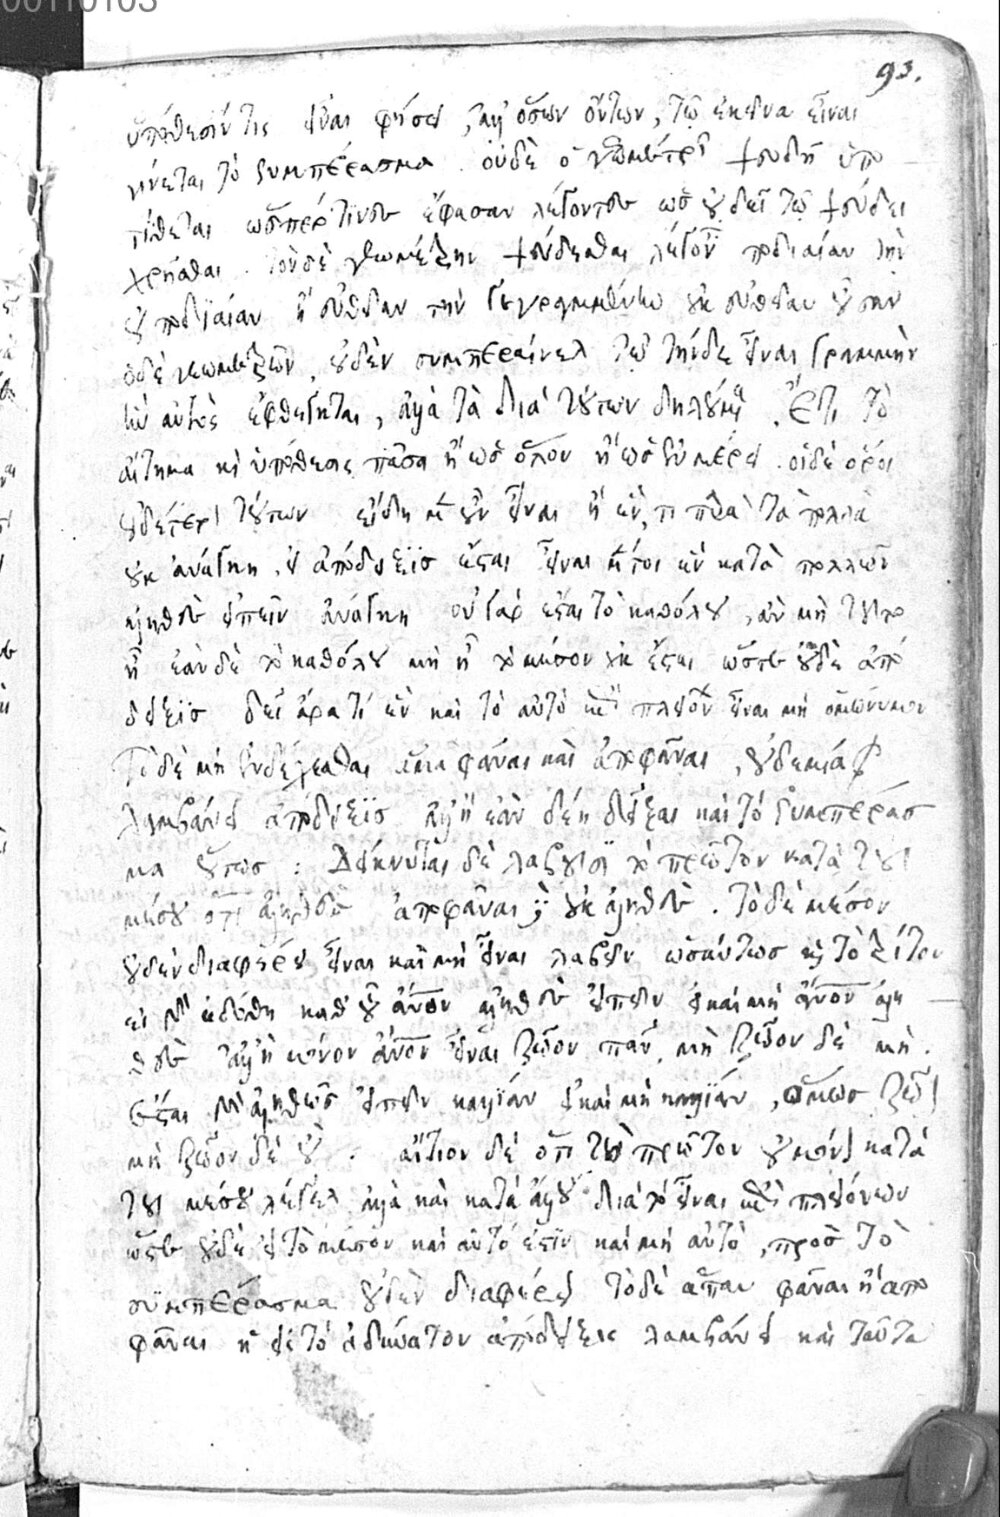 00110103
93.
ὑπόθεσίν τις εἶναι φήσει, ἀλλ' ὅσων ὄντων, τῷ ἐκεῖνα εἶναι
γίνεται τὸ συμπέρασμα. οὐδὲ ὁ γεωμέτρης ψευδῆ ὑπο
τίθεται ὥσπερ τινὲς ἔφασαν λέγοντες ὡς οὐ δεῖ τῷ ψεύδει
χρῆσθαι. τὸν δὲ γεωμέτρην ψεύδεσθαι λέγοντα ποδιαίαν τὴν
οὐ ποδιαίαν ἢ εὐθεῖαν τὴν γεγραμμένην οὐκ εὐθεῖαν οὖσαν
ὁ δὲ γεωμέτρης οὐδὲν συμπεραίνεται τῷ τήνδε εἶναι γραμμὴν
ἣν αὐτὸς ἔφθεγκται, ἀλλὰ τὰ διὰ τούτων δηλούμενα. Ἔτι τὸ
αἴτημα καὶ ὑπόθεσις πᾶσα ἢ ὡς ὅλον ἢ ὡς ἐν μέρει. οἱ δὲ ὅροι
οὐδέτερον τούτων εἴδη μὲν οὖν εἶναι ἢ ἕν τι παρὰ τὰ πολλὰ
οὐκ ἀνάγκη, εἰ ἀπόδειξις ἔσται εἶναι μέντοι ἓν κατὰ πολλῶν
ἀληθὲς εἰπεῖν ἀνάγκη οὐ γὰρ ἔσται τὸ καθόλου, ἂν μὴ τοῦτο
ᾖ ἐὰν δὲ τὸ καθόλου μὴ ᾖ τὸ μέσον οὐκ ἔσται ὥστε οὐδὲ ἀπό
δειξις δεῖ ἄρα τι ἓν καὶ τὸ αὐτὸ ἐπὶ πλειόνων εἶναι μὴ ὁμώνυμον
Τὸ δὲ μὴ ἐνδέχεσθαι ἅμα φάναι καὶ ἀποφάναι, οὐδεμία
λαμβάνει ἀπόδειξις ἀλλ' ἢ ἐὰν δέῃ δεῖξαι καὶ τὸ συμπέρασ
μα οὕτως : Δείκνυται δὲ λαβοῦσι τὸ πρῶτον κατὰ τοῦ
μέσου ὅτι ἀληθὲς ἀποφάναι δ' οὐκ ἀληθές. Τὸ δὲ μέσον
οὐδὲν διαφέρει εἶναι καὶ μὴ εἶναι λαβεῖν ὡσαύτως καὶ τὸ τρίτον
εἰ γὰρ ἐδόθη καθ' οὗ ἄνθρωπον ἀληθὲς εἰπεῖν εἰ καὶ μὴ ἄνθρωπον ἀλη
θὲς ἀλλ' ἢ μόνον ἄνθρωπον εἶναι ζῷον πᾶν, μὴ ζῷον δὲ μή.
ἔσται γὰρ ἀληθῶς εἰπεῖν καλλίαν εἰ καὶ μὴ καλλίαν, ὅμως ζῷον
μὴ ζῷον δὲ οὔ. αἴτιον δὲ ὅτι τὸ πρῶτον οὐ μόνον κατὰ
τοῦ μέσου λέγεται ἀλλὰ καὶ κατὰ ἄλλου διὰ τὸ εἶναι ἐπὶ πλειόνων
ὥστε οὐδὲ εἰ τὸ μέσον καὶ αὐτό ἐστιν καὶ μὴ αὐτὸ, πρὸς τὸ
συμπέρασμα οὐδὲν διαφέρει τὸ δὲ ἅπαν φάναι ἢ ἀπο
φάναι ἡ εἰς τὸ ἀδύνατον ἀπόδειξις λαμβάνει καὶ ταῦτα